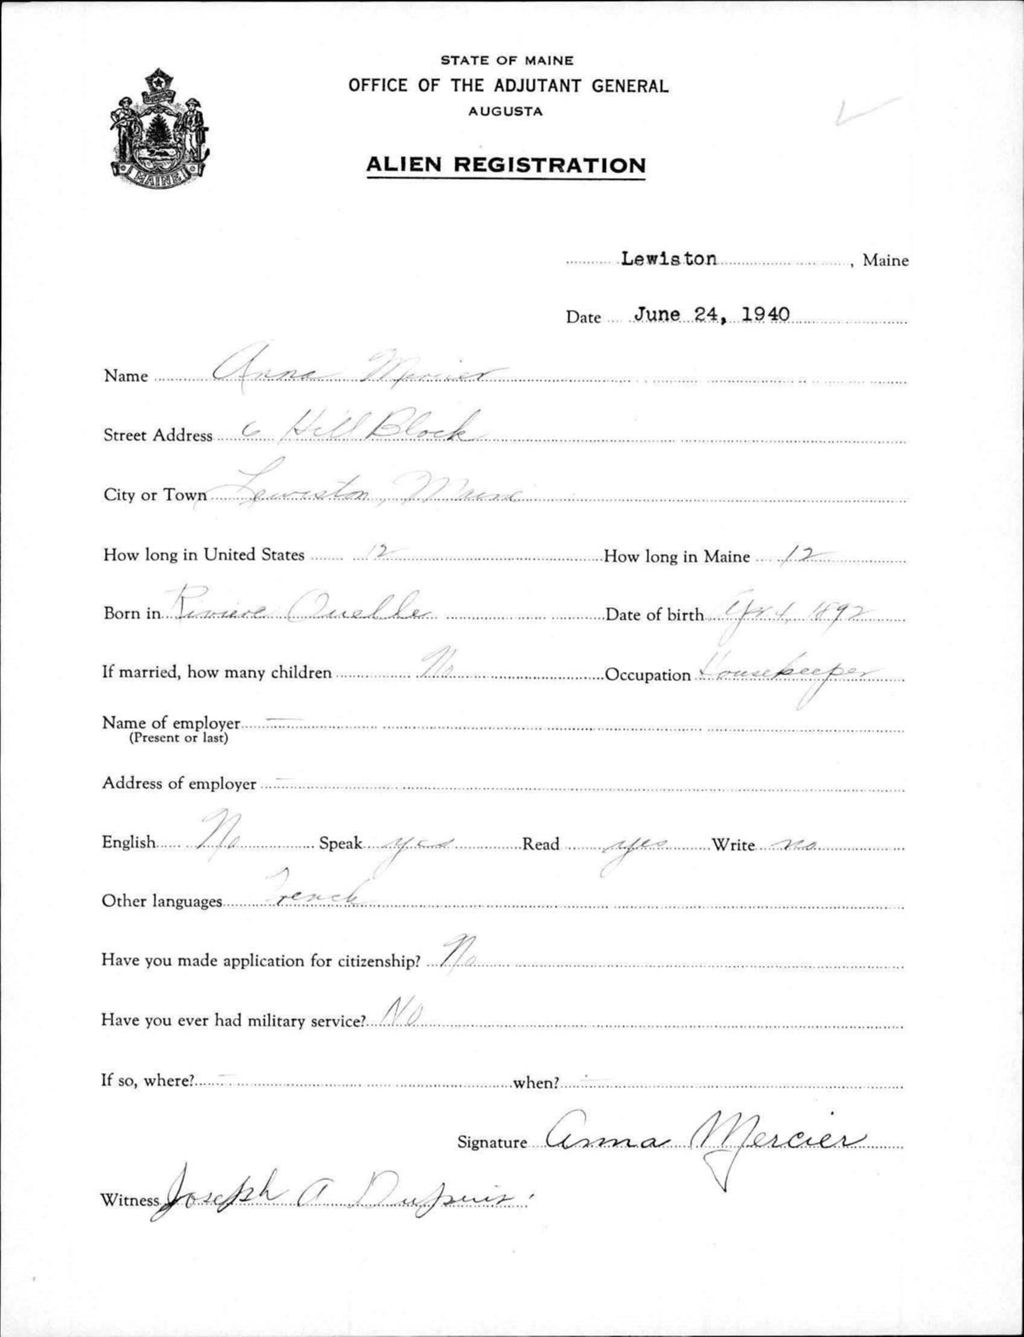 STATE OF MAINE
OFFICE OF THE ADJUTANT GENERAL
AUGUSTA
ALIEN REGISTRATION
MAINE
Lewiston, Maine
Date June 24, 1940
Name Anna Mercier
Street Address 6 Hill Block
City or Town Lewiston, Maine
How long in United States 12 How long in Maine 12
Born in Riviere Ouelle Date of birth 1, 1892
If married, how many children No Occupation Housekeeper
Name of employer —
(Present or last)
Address of employer —
English No Speak yes Read yes Write no
Other languages French
Have you made application for citizenship? No
Have you ever had military service? No
If so, where? — when? —
Signature Anna Mercier
Witness Joseph A Dupuis